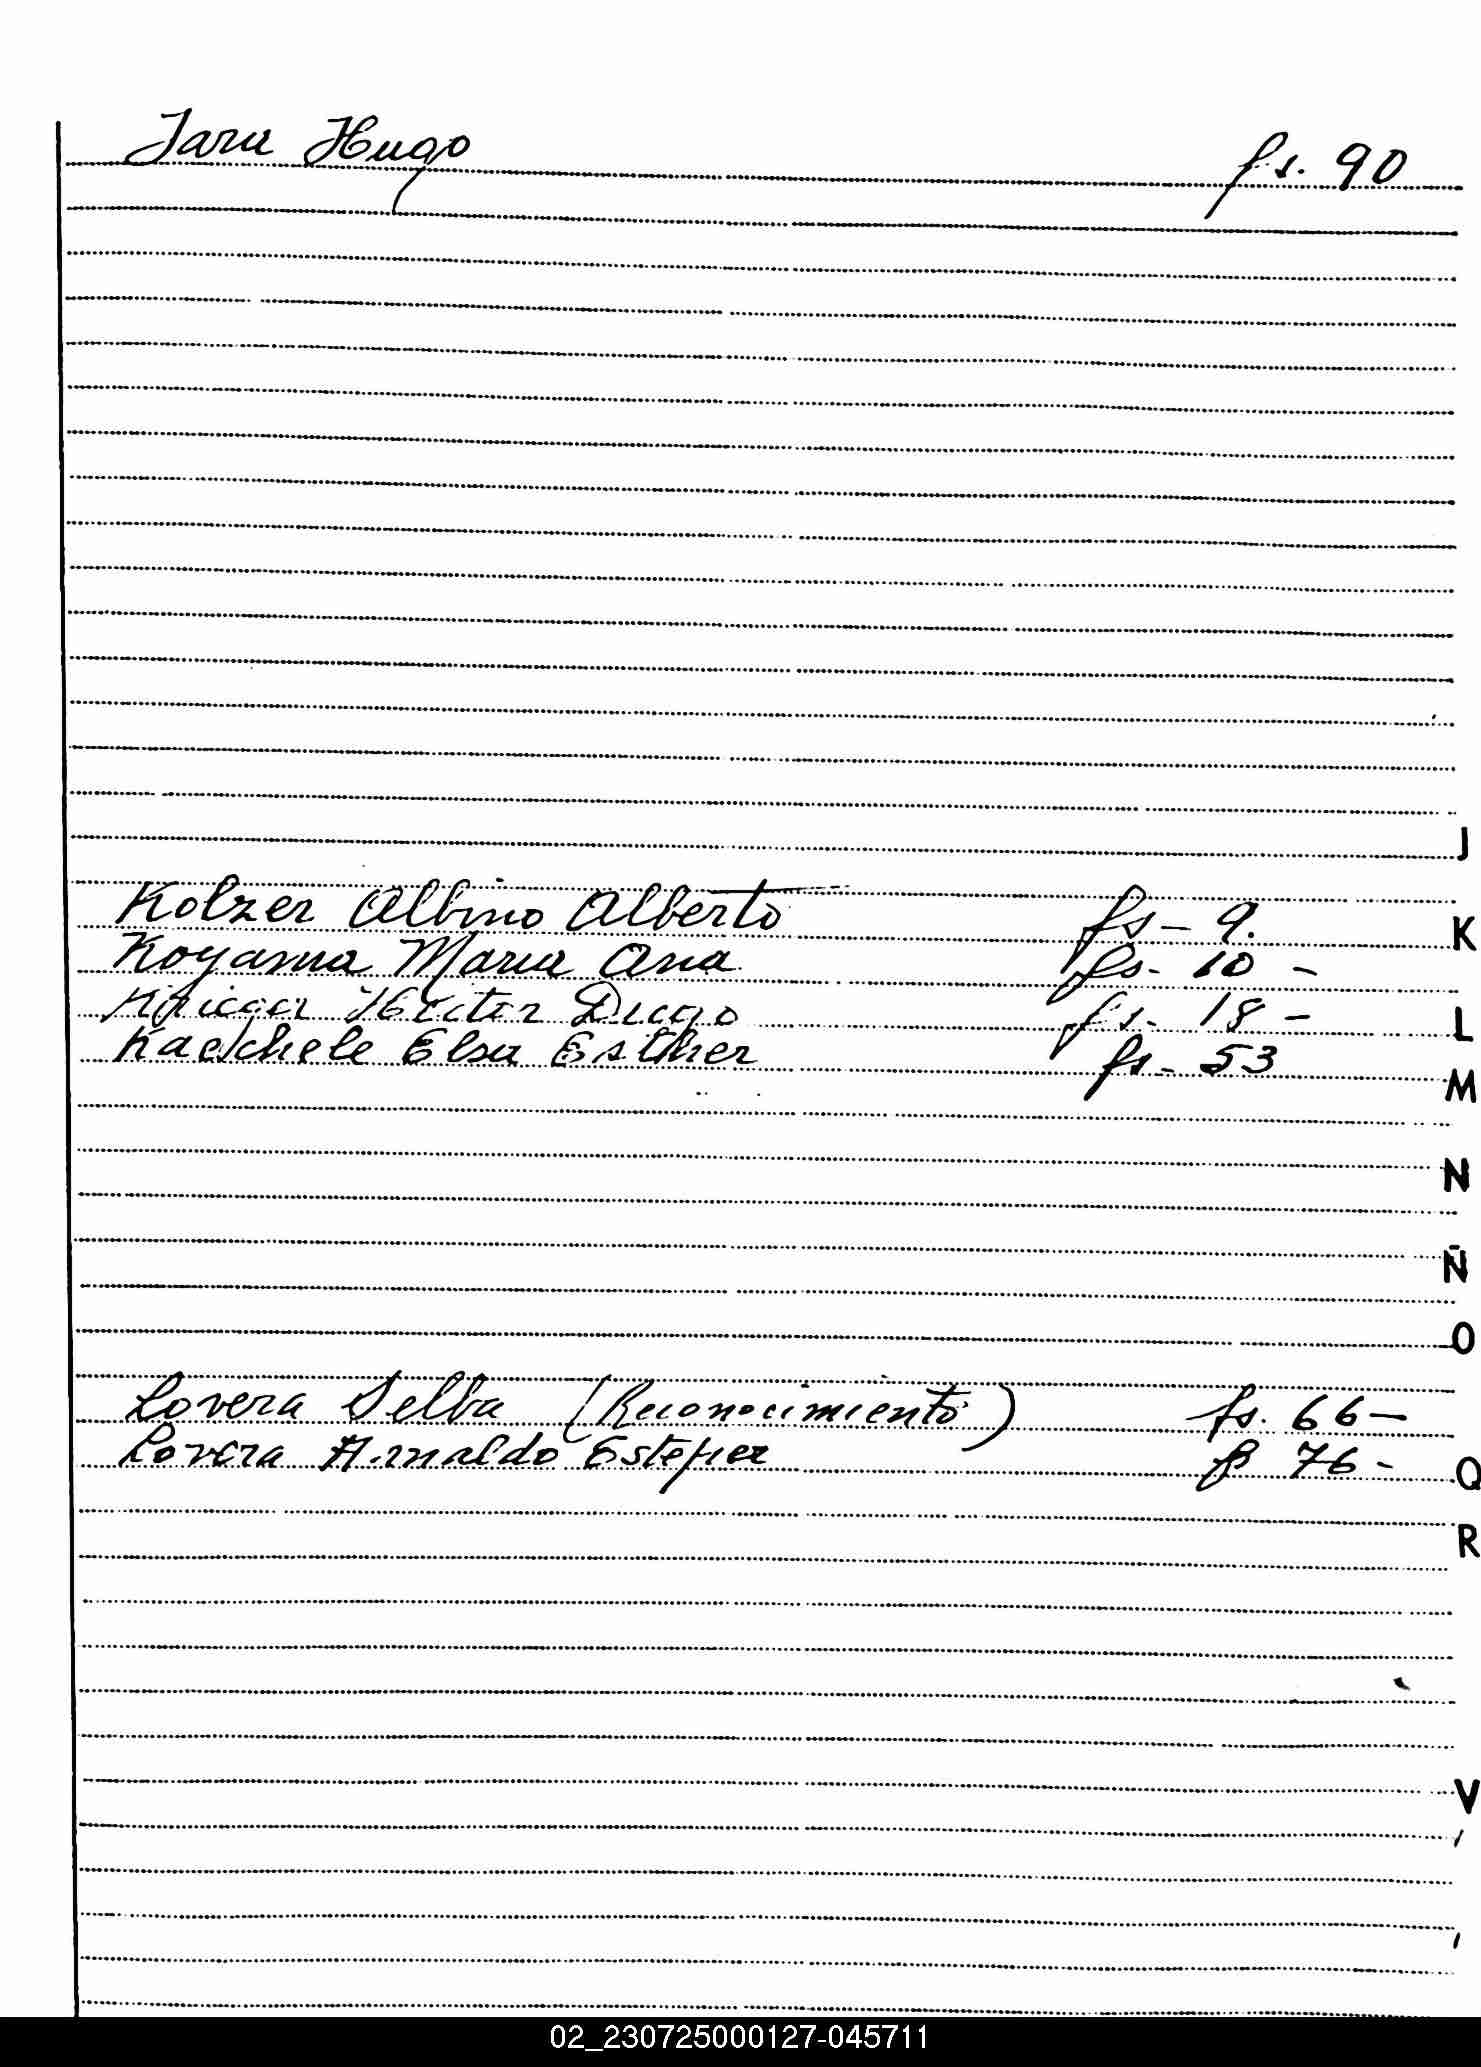 Jara Hugo fs. 90
J
Kolzer Albino Alberto fs - 9.
K
Koyama Maria Ana fs - 10 -
Krieger Hector Diego fs - 18 -
L
Kaechele Elsa Esther fs - 53
M
N
Ñ
O
Lovera Selba (Reconocimiento) fs. 66 -
Lovera Arnaldo fs 76 -
Q
R
V
02_230725000127-045711